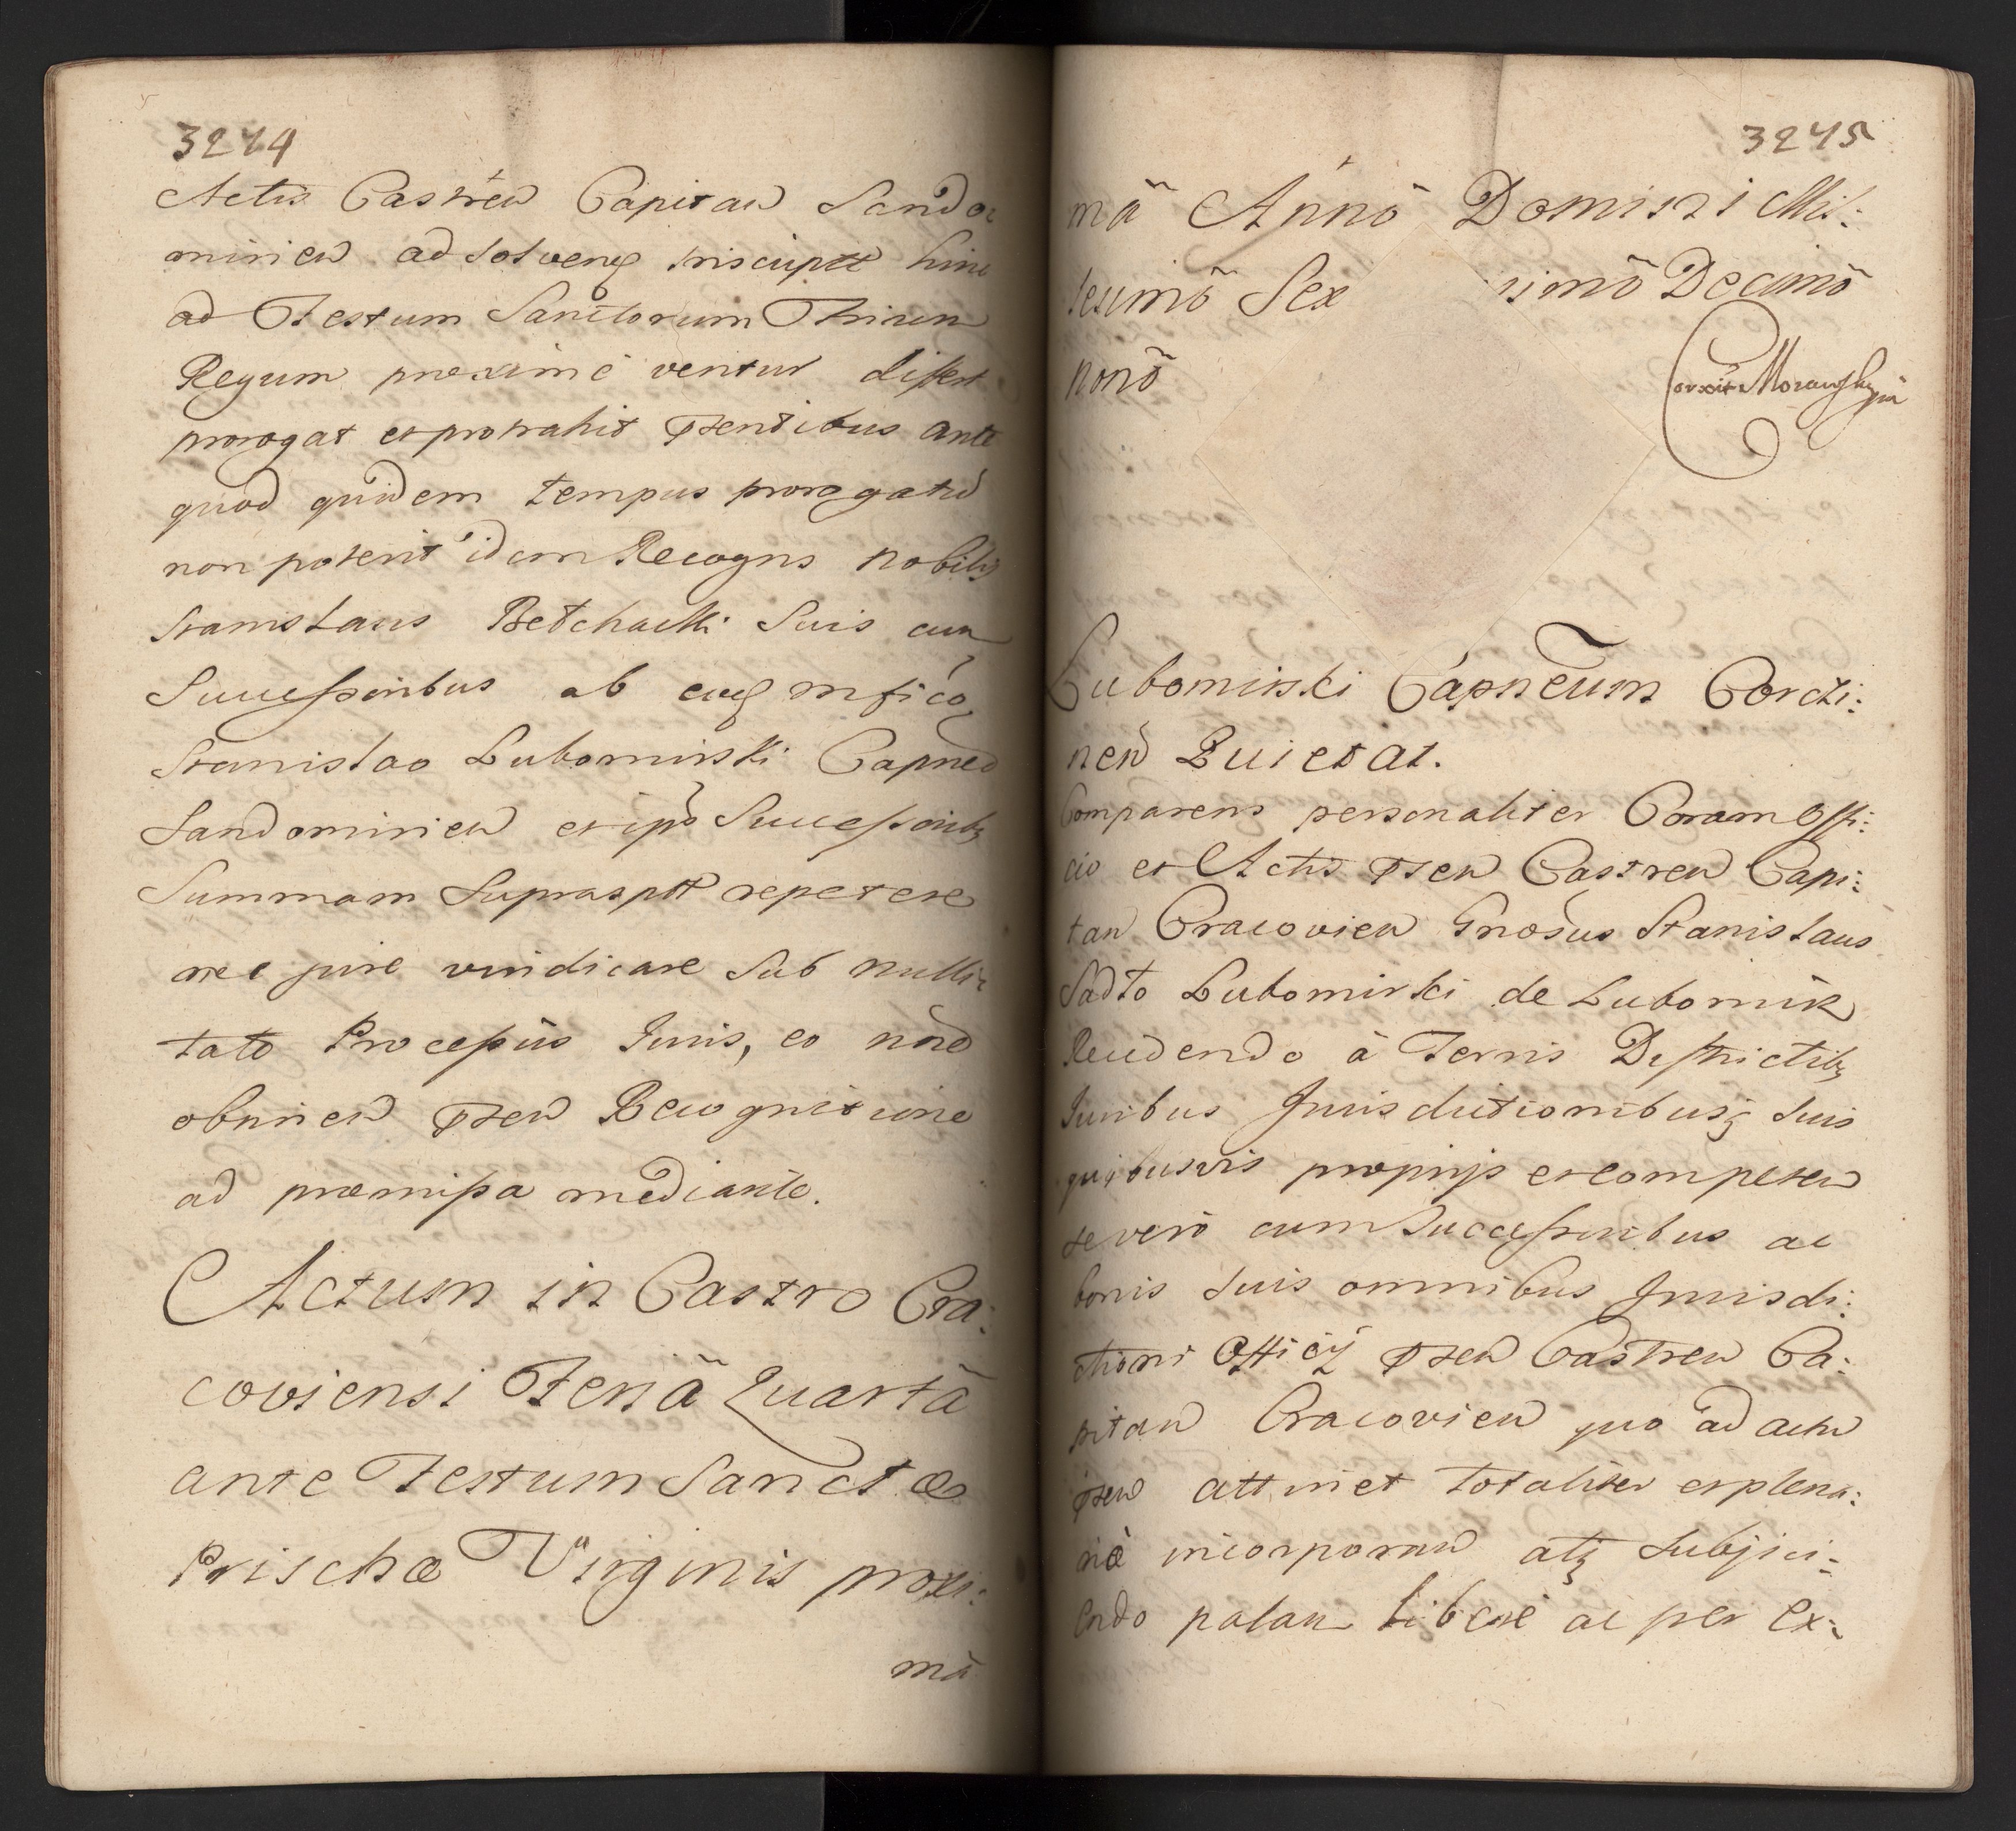 3244
Actis Castren Capitan Sando:
mirien ad solveng inscriptt hinc
ad Festum Sanctorum Trium
Regum proxime ventur differt
prorogat et protrahit pñtibus ante
quod quidem tempus prorogatu
non poterit idem Recogns nobilis
Stanislaus Betchacki Suis cum
Successoribus ab eog mfico
Stanislao Lubomirski Capneo
Sandomirien et ipõ Successoribq
Summam Suprasptt repetere
nec jure vindicare Sub nulli:
tate Processus Juris, eo nõe
obvinien pñsen Recognitione
ad præmissa mediante.
Actum in Castro Cra:
coviensi Feriã Quartã
ante Festum Sanctæ
Prischæ Virginis proxi:
mã
3245
mã Annõ Domini Mil:
lesimõ Sex simõ Decimõ
nonõ
Corxit Morawski mp
Lubomirski Capneum Corczi:
nen Quietat.
Comparens personaliter Coram Offi:
cio et Actis pñsen Castren Capi:
tan Cracovien Gnosus Stanislaus
Sadło Lubomirski de Lubomir
Recedendo à Terris Districtibq
Juribus Jurisdictionibusq suis
quibusvis proprijs et competen
se vero cum Successoribus ac
bonis suis omnibus Jurisdi:
ctioni Officij pñsen Castren Ca:
pitan Cracovien quo ad actu
pñsen attinet totaliter et plena:
riè incorporan atq subjici:
endo palam liberè ac per ex: